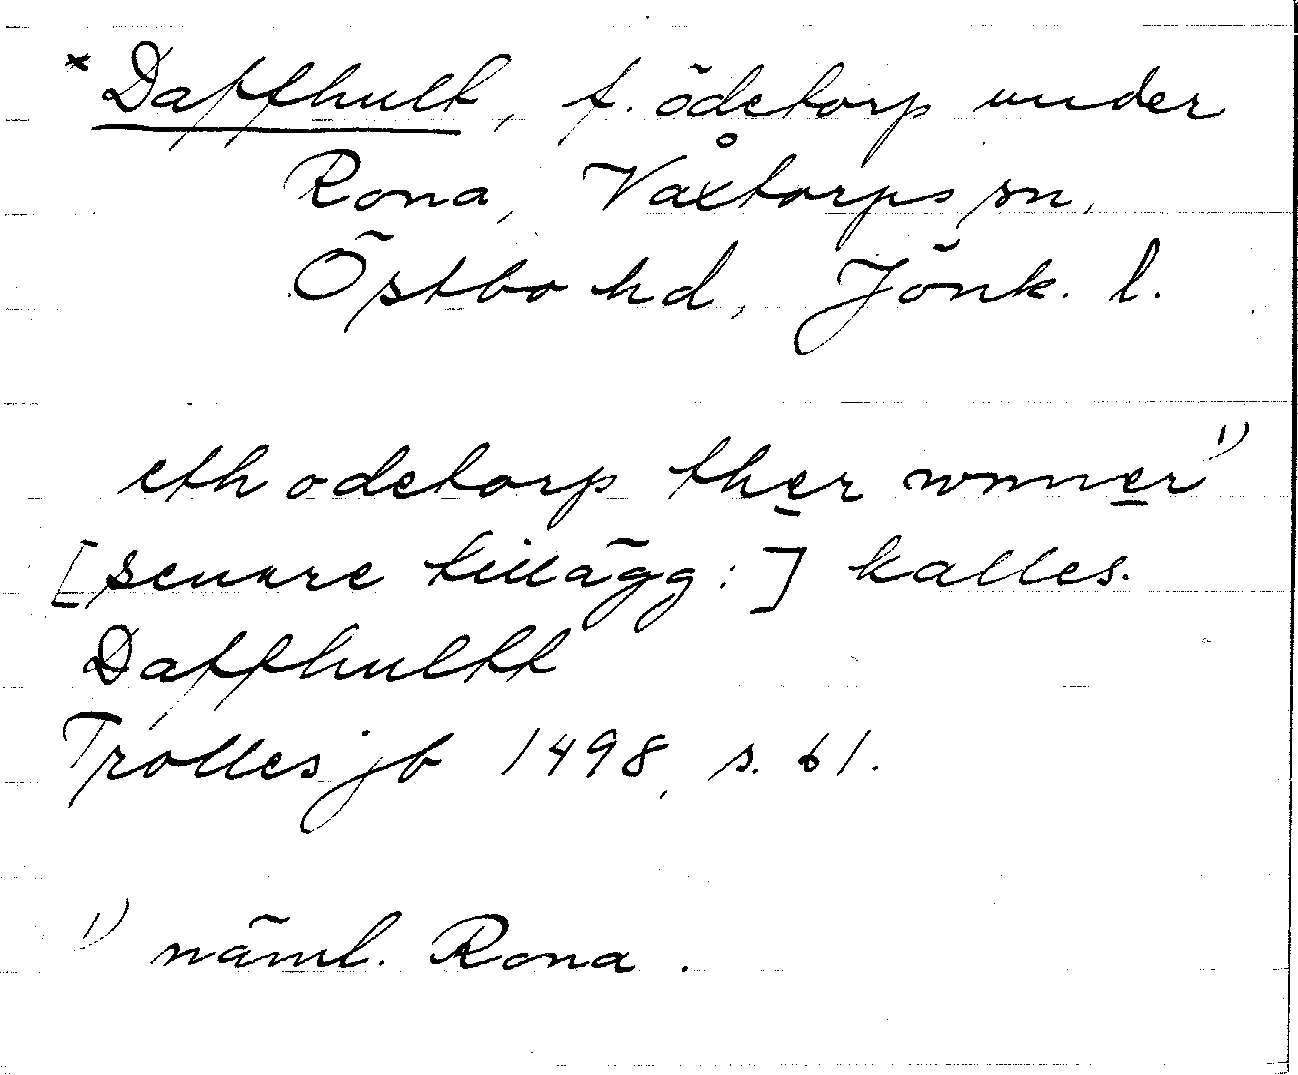 *Daffhult, f. ödetorp under
Rona, Våxtorps sn,
Östbo hd, Jönk. l.
eth odetorp ther wnner 1)
[senare tillägg:] kalles.
Daffhultt
Trolles jb 1498, s. 61.
1) näml. Rona.